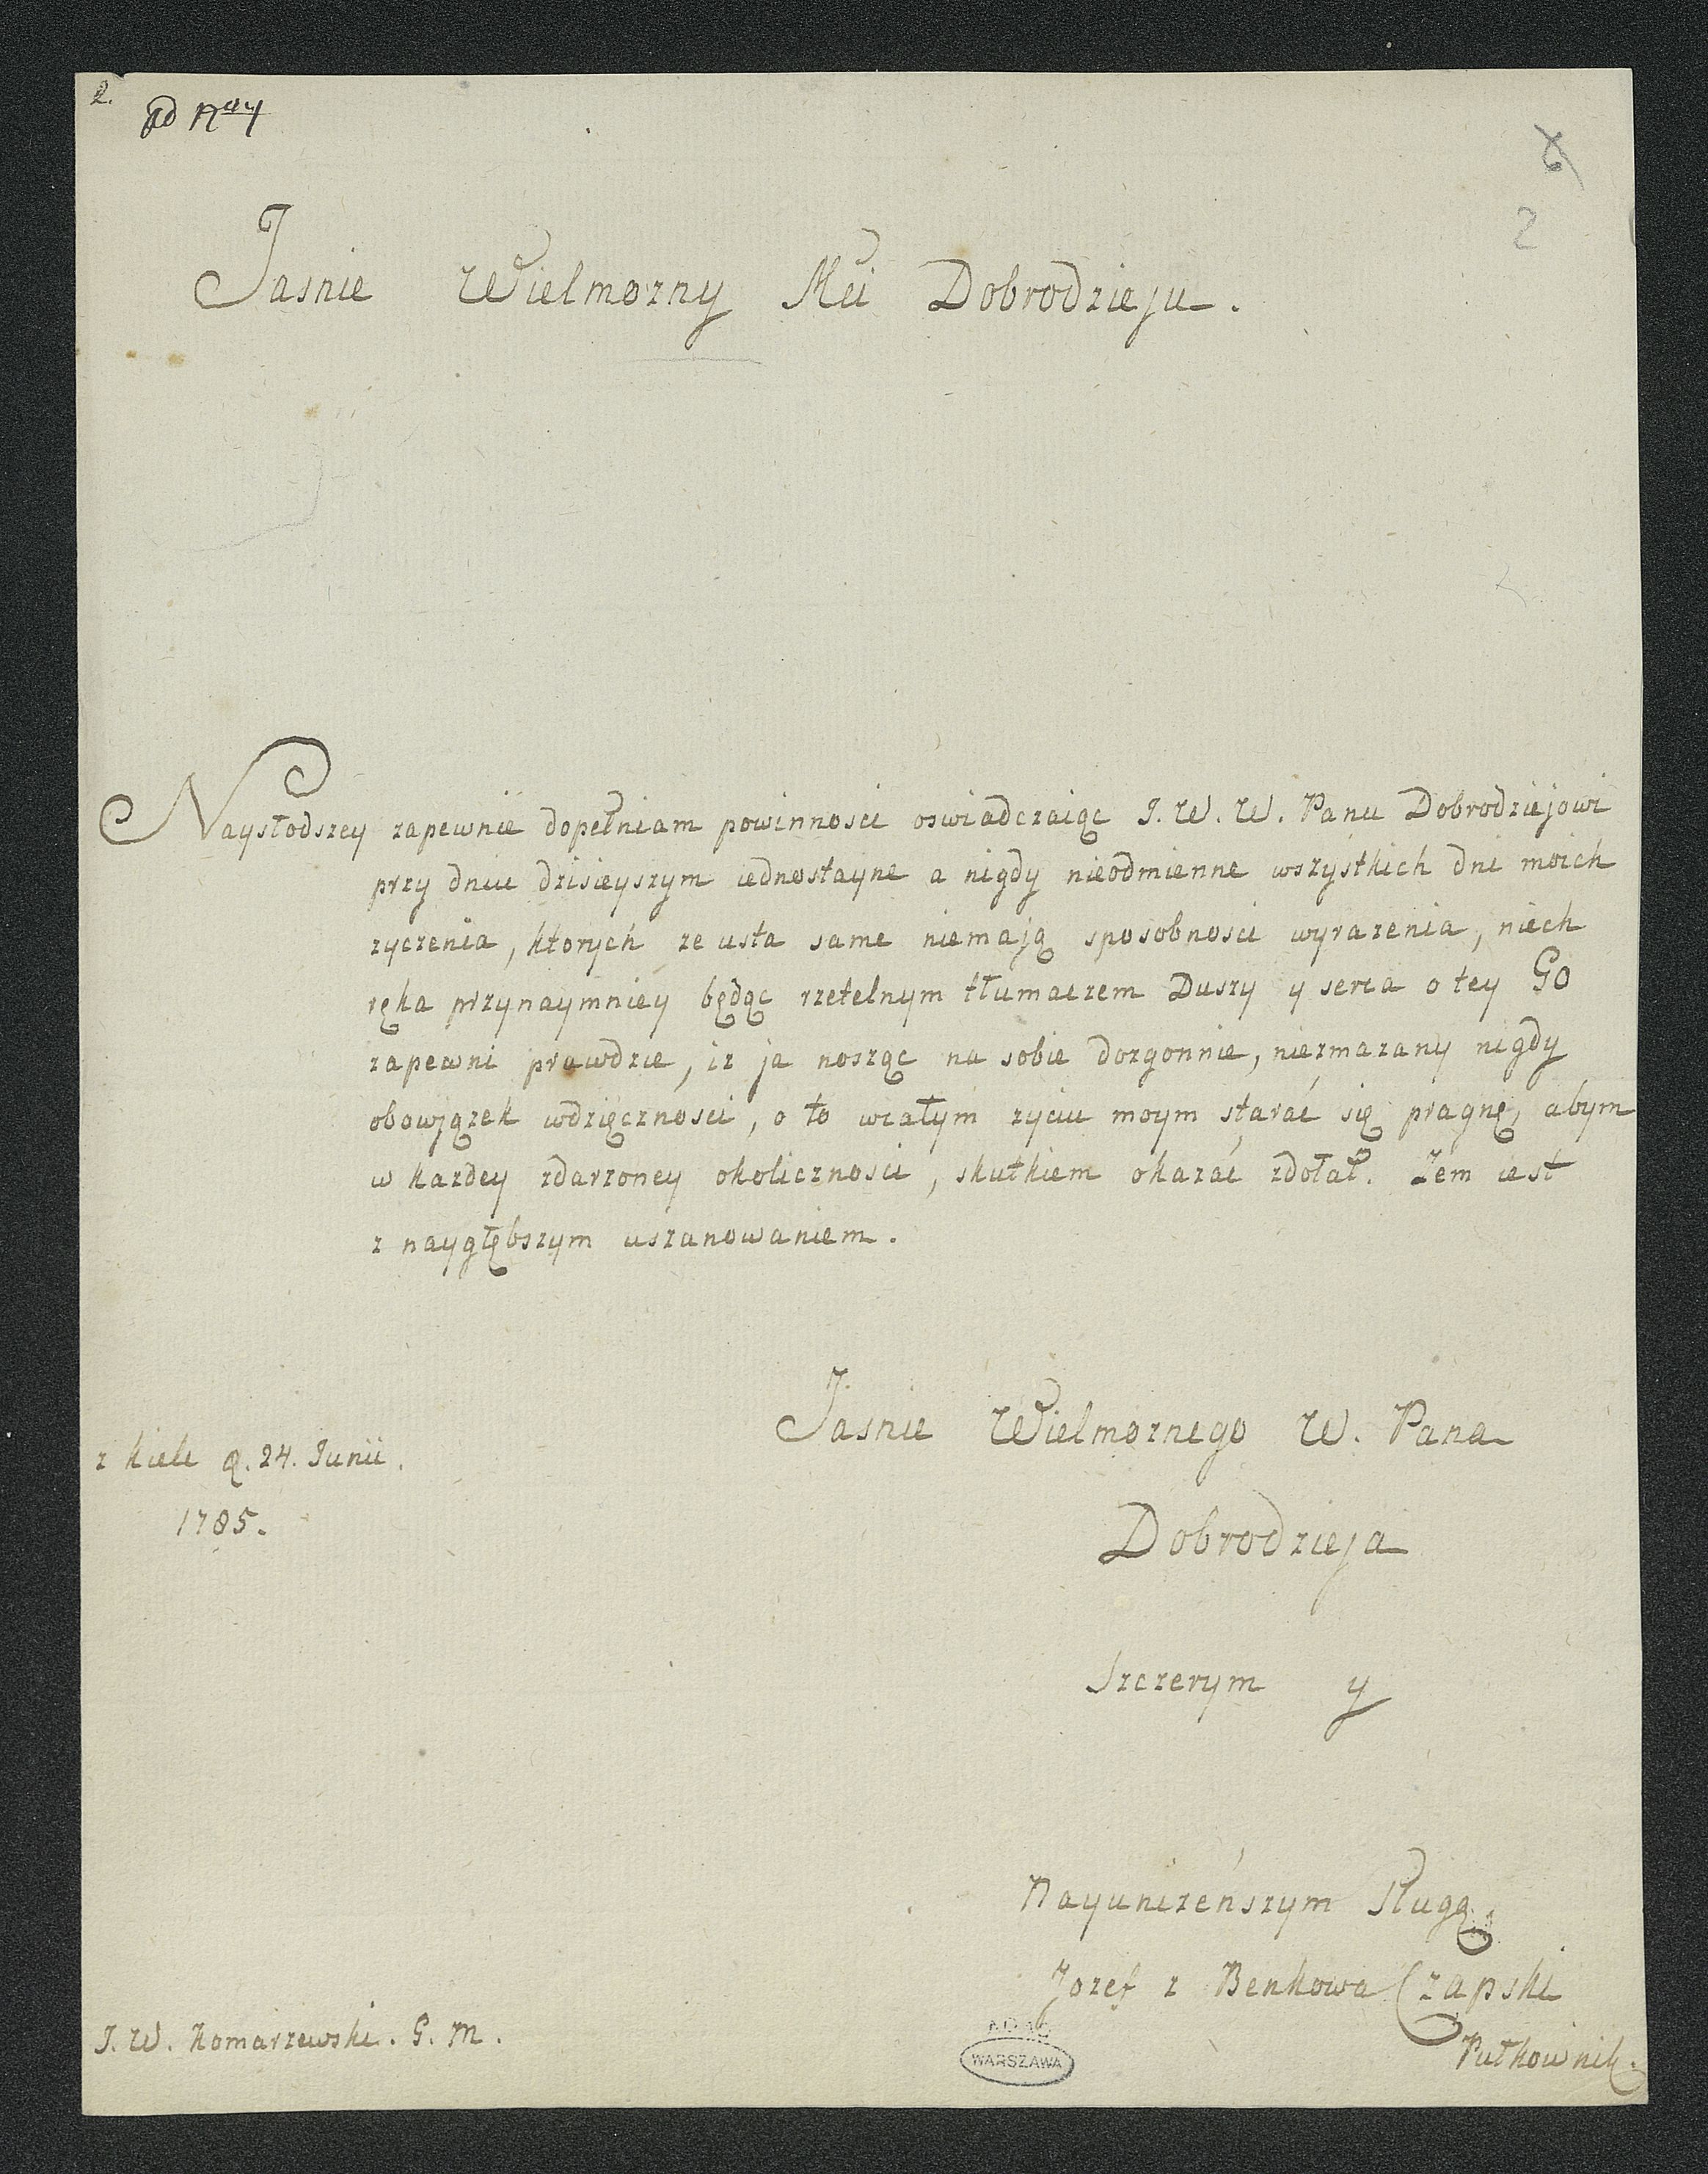 2.
ad N 4
6
2
Jasnie Wielmozny Mci Dobrodzieju.
Naysłodszey zapewnie dopełniam powinnosci oswiadczaiąc J. W. W. Panu Dobrodziejowi
przy dniu dzisieyszym iednostayne a nigdy nieodmienne wszystkich dni moich
zyczenia, ktorych ze usta same niemają sposobnosci wyrazenia, niech
ręka przynaymniey będąc rzetelnym tłumaczem Duszy y serca o tey Go
zapewni prawdzie, iz ja nosząc na sobie dozgonnie, niezmazany nigdy
obowjązek wdzięcznosci, o to wcałym zyciu moym starać się pragnę, abym
w kazdey zdarzoney okolicznosci, skutkiem okazać zdołał. Zem iest
z naygłębszym uszanowaniem.
Jasnie Wielmoznego W. Pana
z Kielc d. 24. Junii.
1785.
Dobrodzieja
Szczerym y
Nayunizeńszym Sługą
Jozef z Benkowa Czapski
Pułkownik.
J. W. Komarzewski. G. M.
AGAD
WARSZAWA